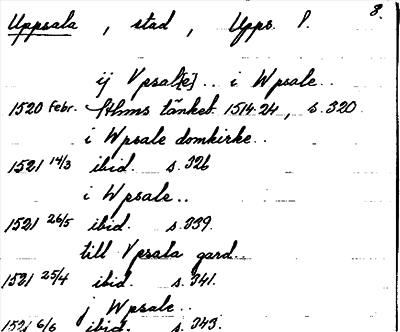 8.
Uppsala , stad , Upps. l.
ij Vpsal[e] .. i Wpsale ..
1520 Febr. Sthms tänkeb. 1514-24, s. 320
i Wpsale domkirke ..
1521 14/3 ibid. s. 326
i Wpsale ..
1521 26/5 ibid. s. 339.
till Vpsala gard ..
1521 25/4 ibid. s. 341.
j Wpsale ..
1521 6/6 ibid. s. 343.